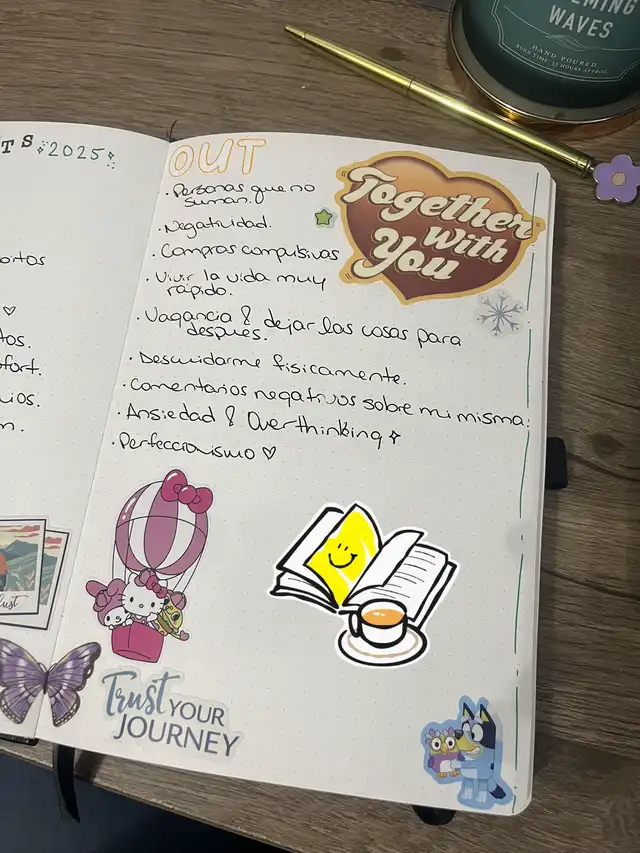 EMING
WAVES
HAND POURED
BURN TIME: 51 HOURS APPROX.
TS 2025
ortos
tos.
fort.
ios.
n.
OUT
· Personas que no
suman.
· Negatividad.
· Compras compulsivas
· Vivir la vida muy
rápido.
· Vagancia & dejar las cosas para
después.
· Descuidarme físicamente.
· Comentarios negativos sobre mi misma.
· Ansiedad & Overthinking
· Perfeccionismo ♡
Together
With
You
Trust YOUR
JOURNEY